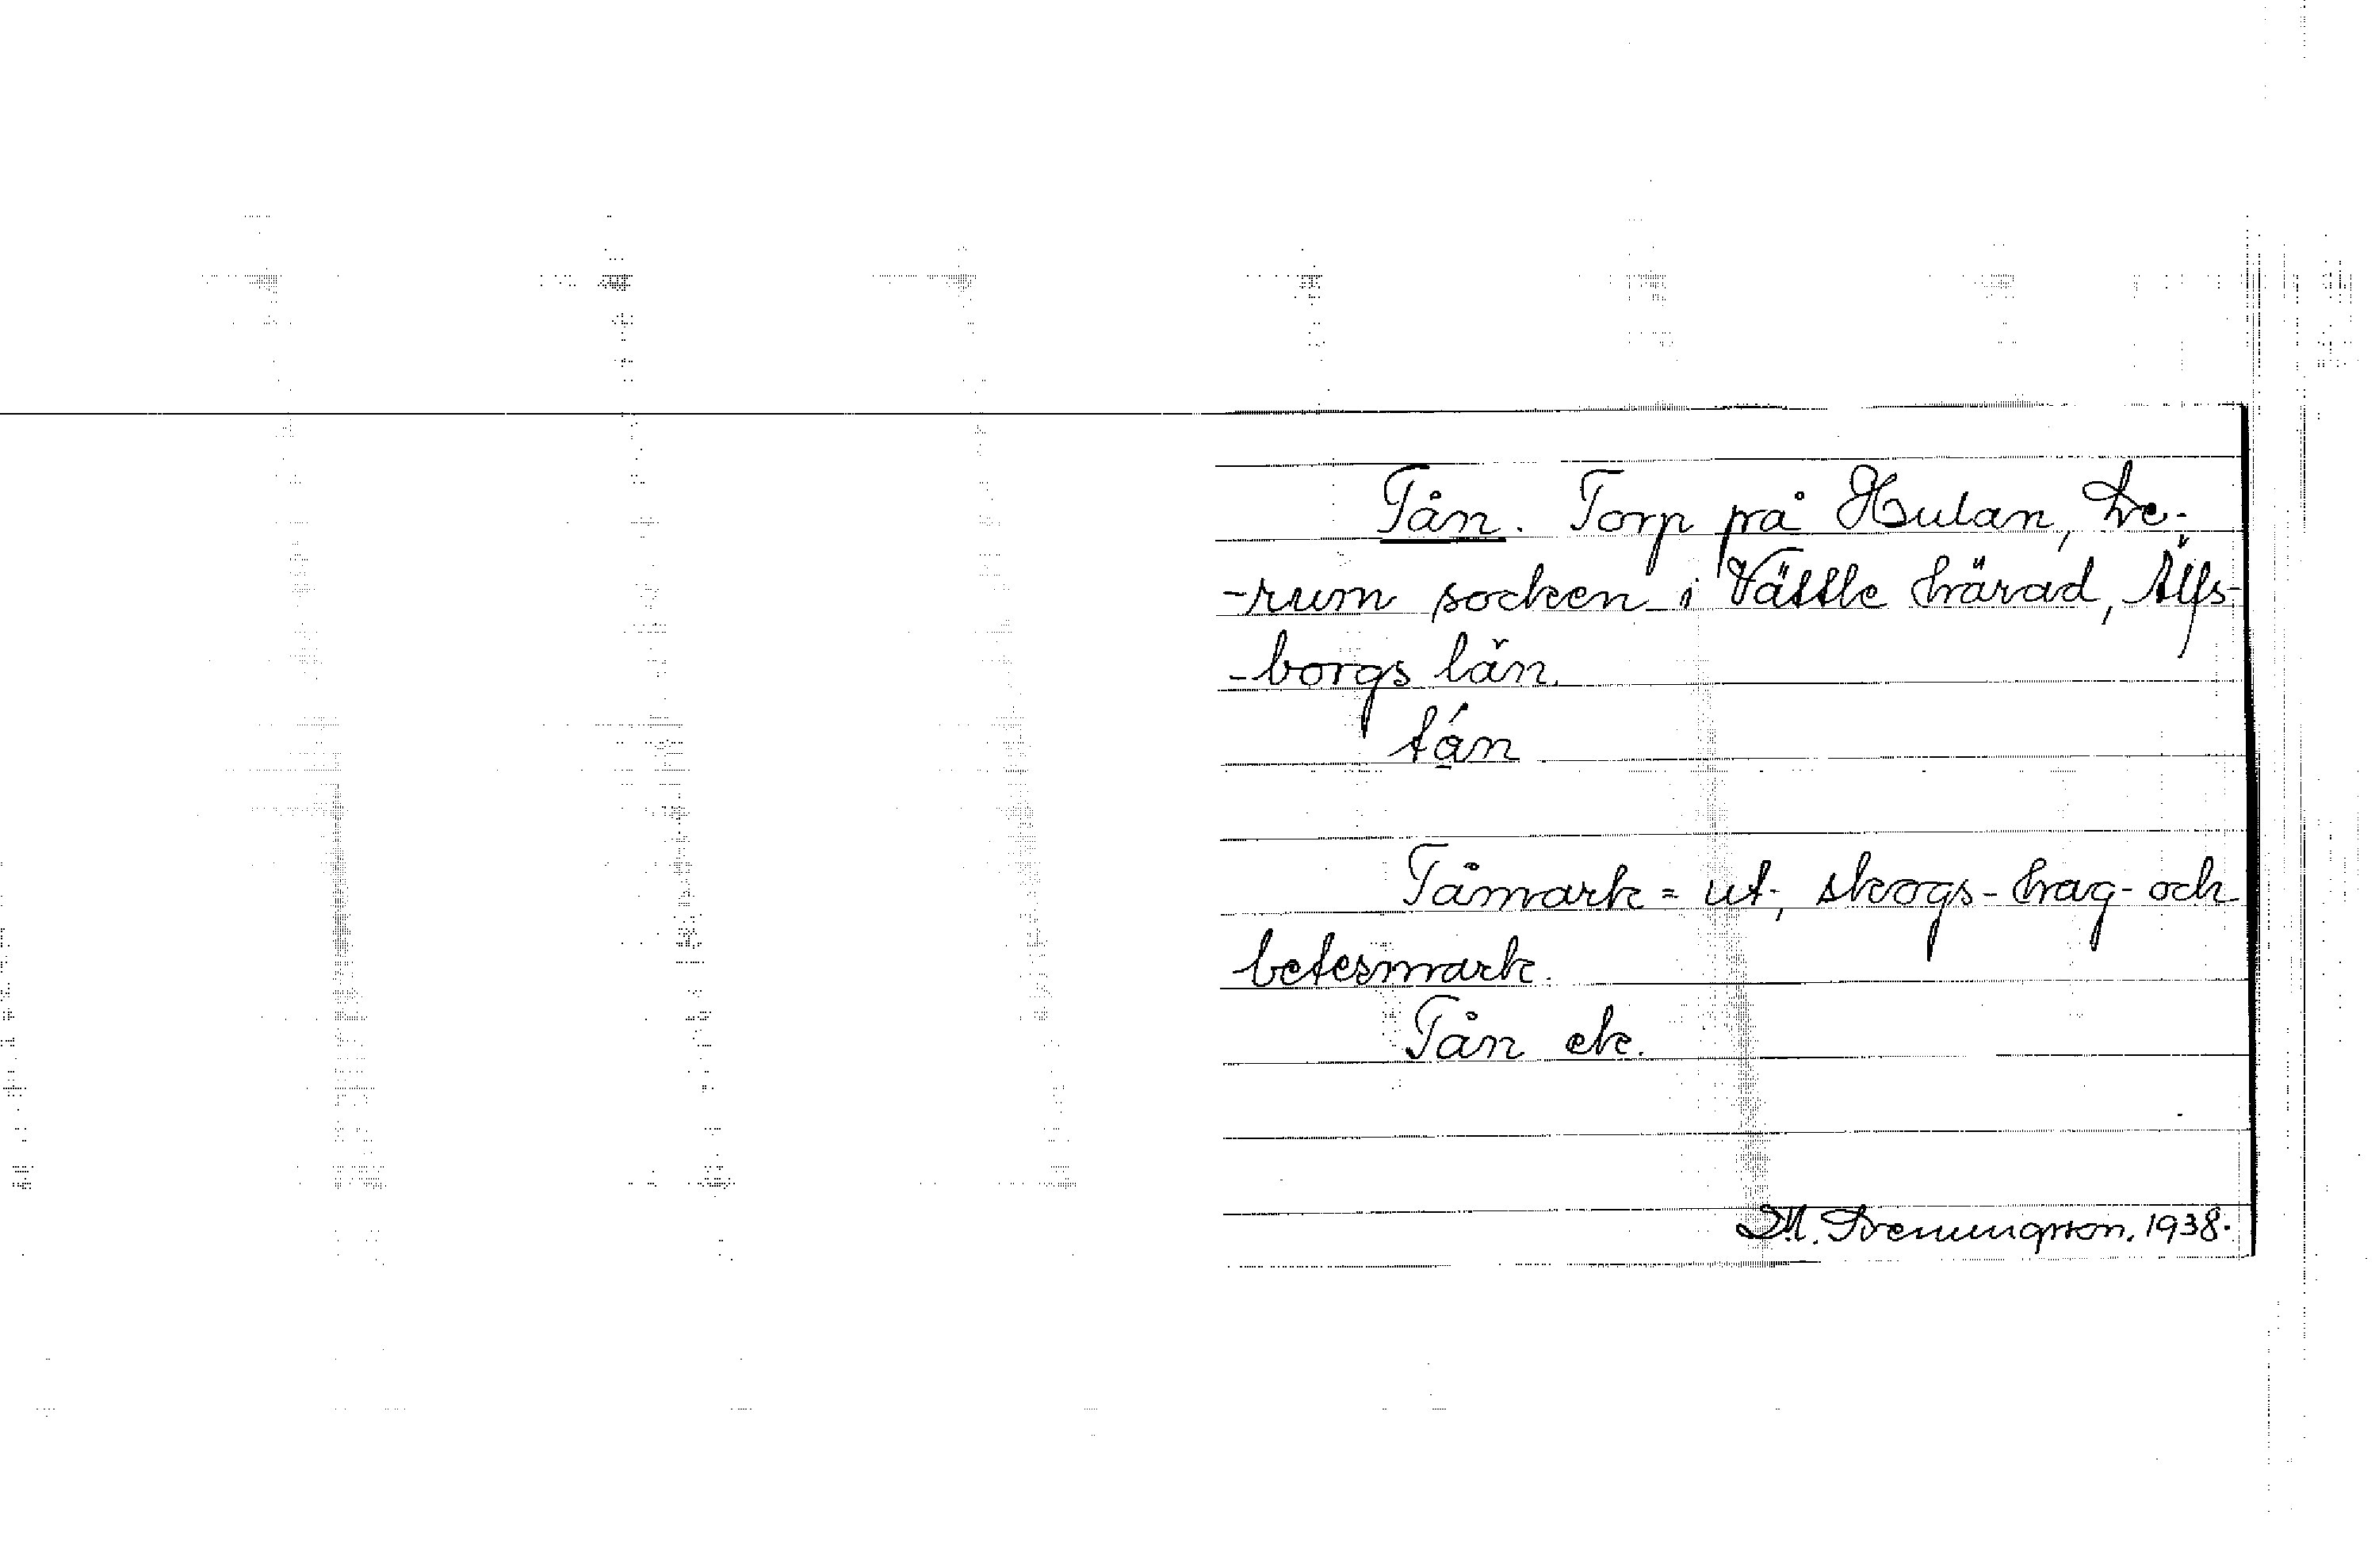 Tån. Torp på Hulan, Le-
-rum socken i Vättle härad, Älfs-
-borgs län.
tá̱n
Tåmark = ut-, skogs- hag- och
betesmark.
Tån ek.
1938.